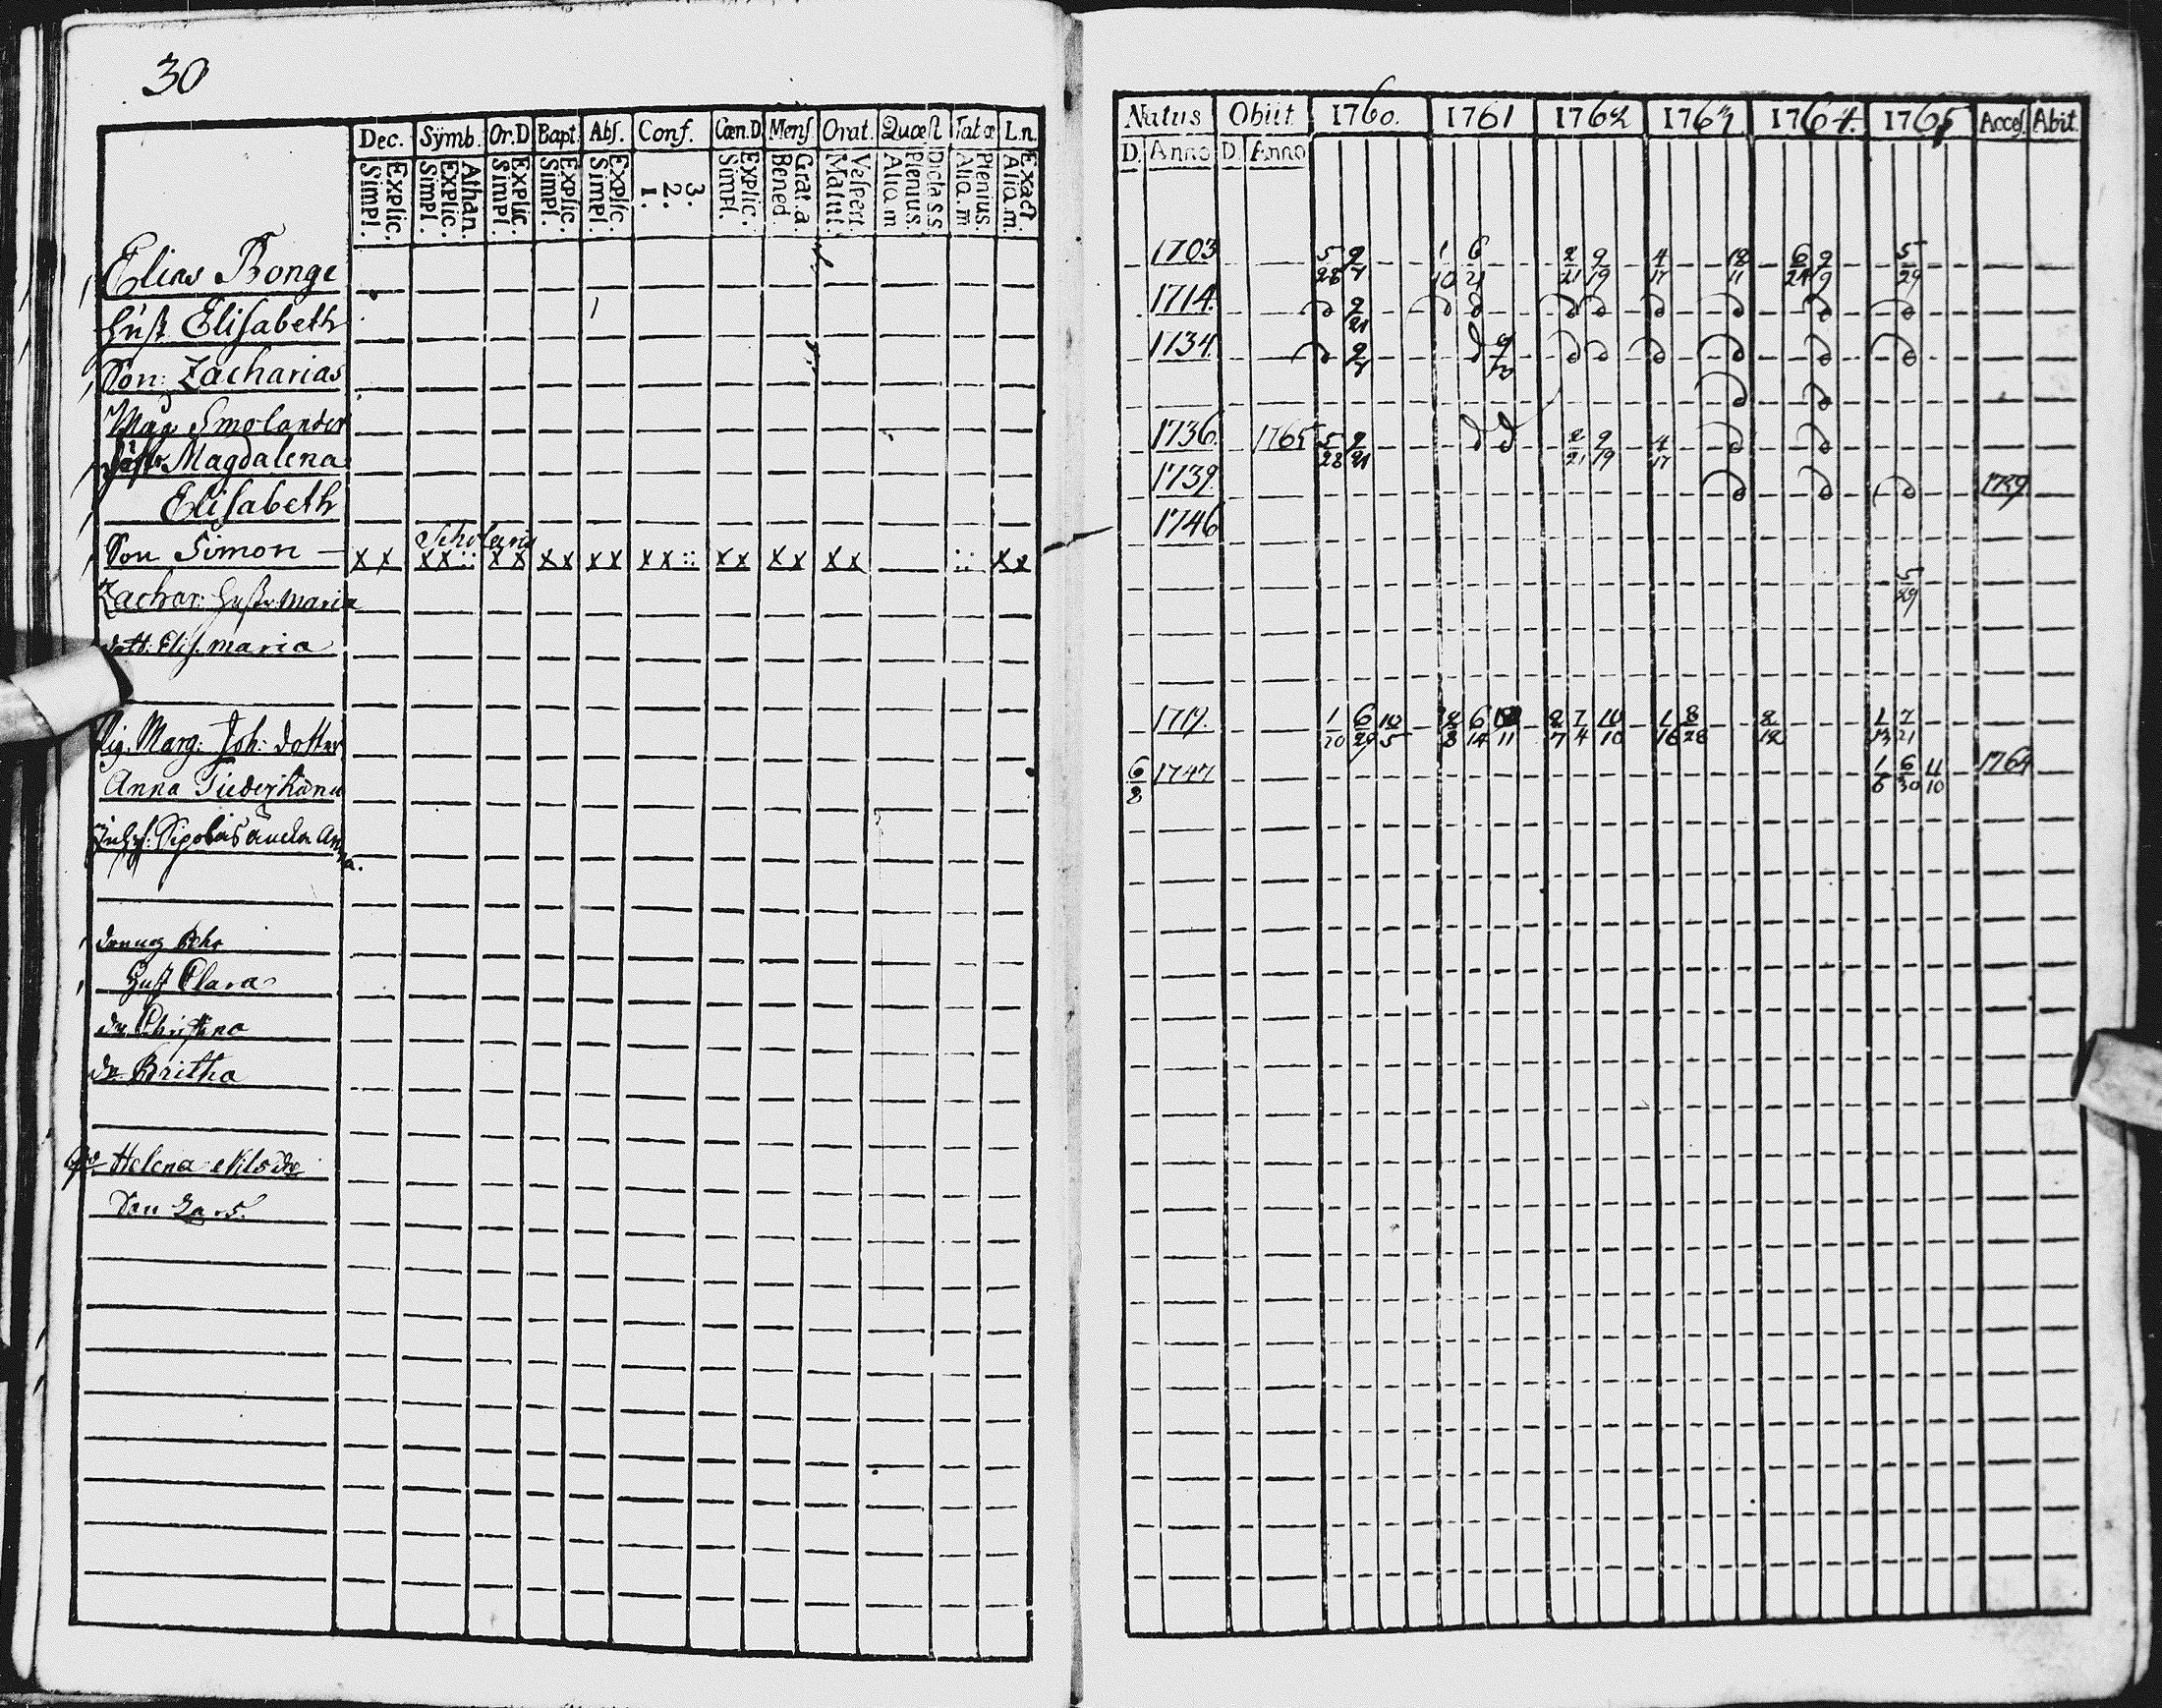 30
Dec. Symb. Or.D Bapt. Abſ. Conf. Cœn.D Menſ Orat. Quœſt Tabœ L.n.
Explic. Simpl. Athan. Explic. Simpl. Explic. Simpl. Explic. Simpl. Explic. Simpl. 3. 2. 1. Explic. Simpl. Grat.a. Bened Veſpert. Matut. Dicta s.s Plenius. Aliq.m Plenius. Aliq.m Exact Aliq.m.
Elias Bonge
Huſt. Eliſabeth
Son: Zacharias
Måg Smolander
Magdalena
Eliſabeth
Scholaris
Son Simon
x x x x :: x x x x x x x x :: x x x x x x :: x x
Zachar: Huſtr Maria
dott: Eliſ. maria
Pig. Marg: Joh: dotter
Anna
Anna
Huſt Clara
dr Chriſtina
dr Britha
Helena Nils dr
Son Lars.
Natus Obiit 1760. 1761 1762 1763 1764. 1765 Acceſ. Abit.
D. Anno D. Anno
1703 5/28 9/7 1/10 6/21 2/21 9/19 4/17 12/11 6/24 9/9 5/29
1714. d 9/21 d d d d d d d d
1734. d 9/7 d d d d d d d
d d
1736. 1765 5/28 9/21 d d 2/21 9/19 4/17 d d
1739. d d d 1739
1746
5/29
1719. 1/20 6/29 10/5 2/8 6/14 11 2/7 7/4 10/10 1/16 8/28 2/12 1/13 7/21
6/8 1747 1/6 6/30 11/10 1764